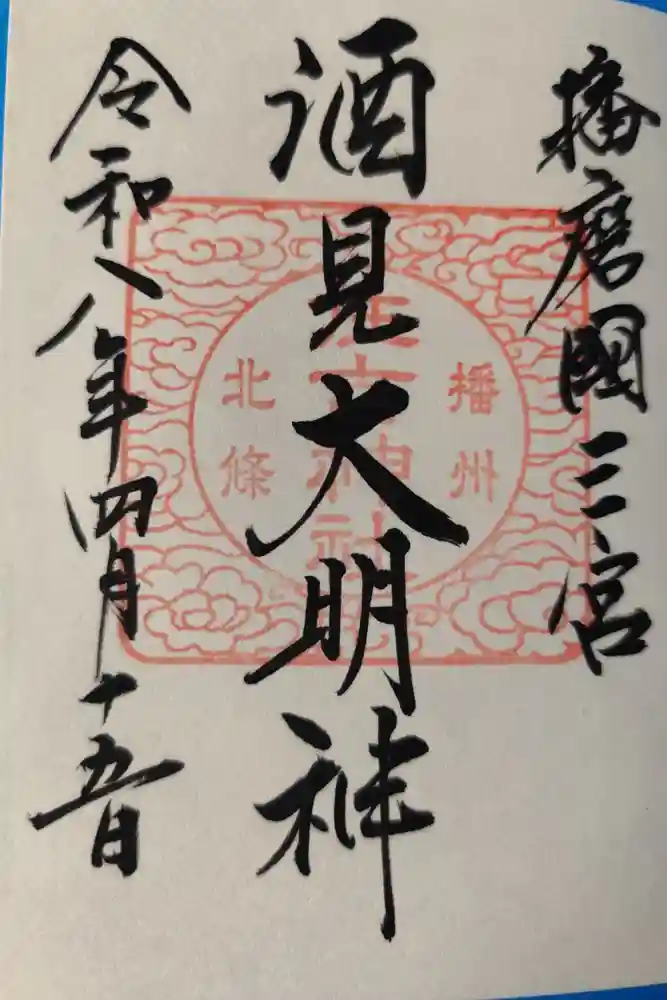 播磨國三宮
酒見大明神
令和八年四月十五日
播州
住吉神社
北條